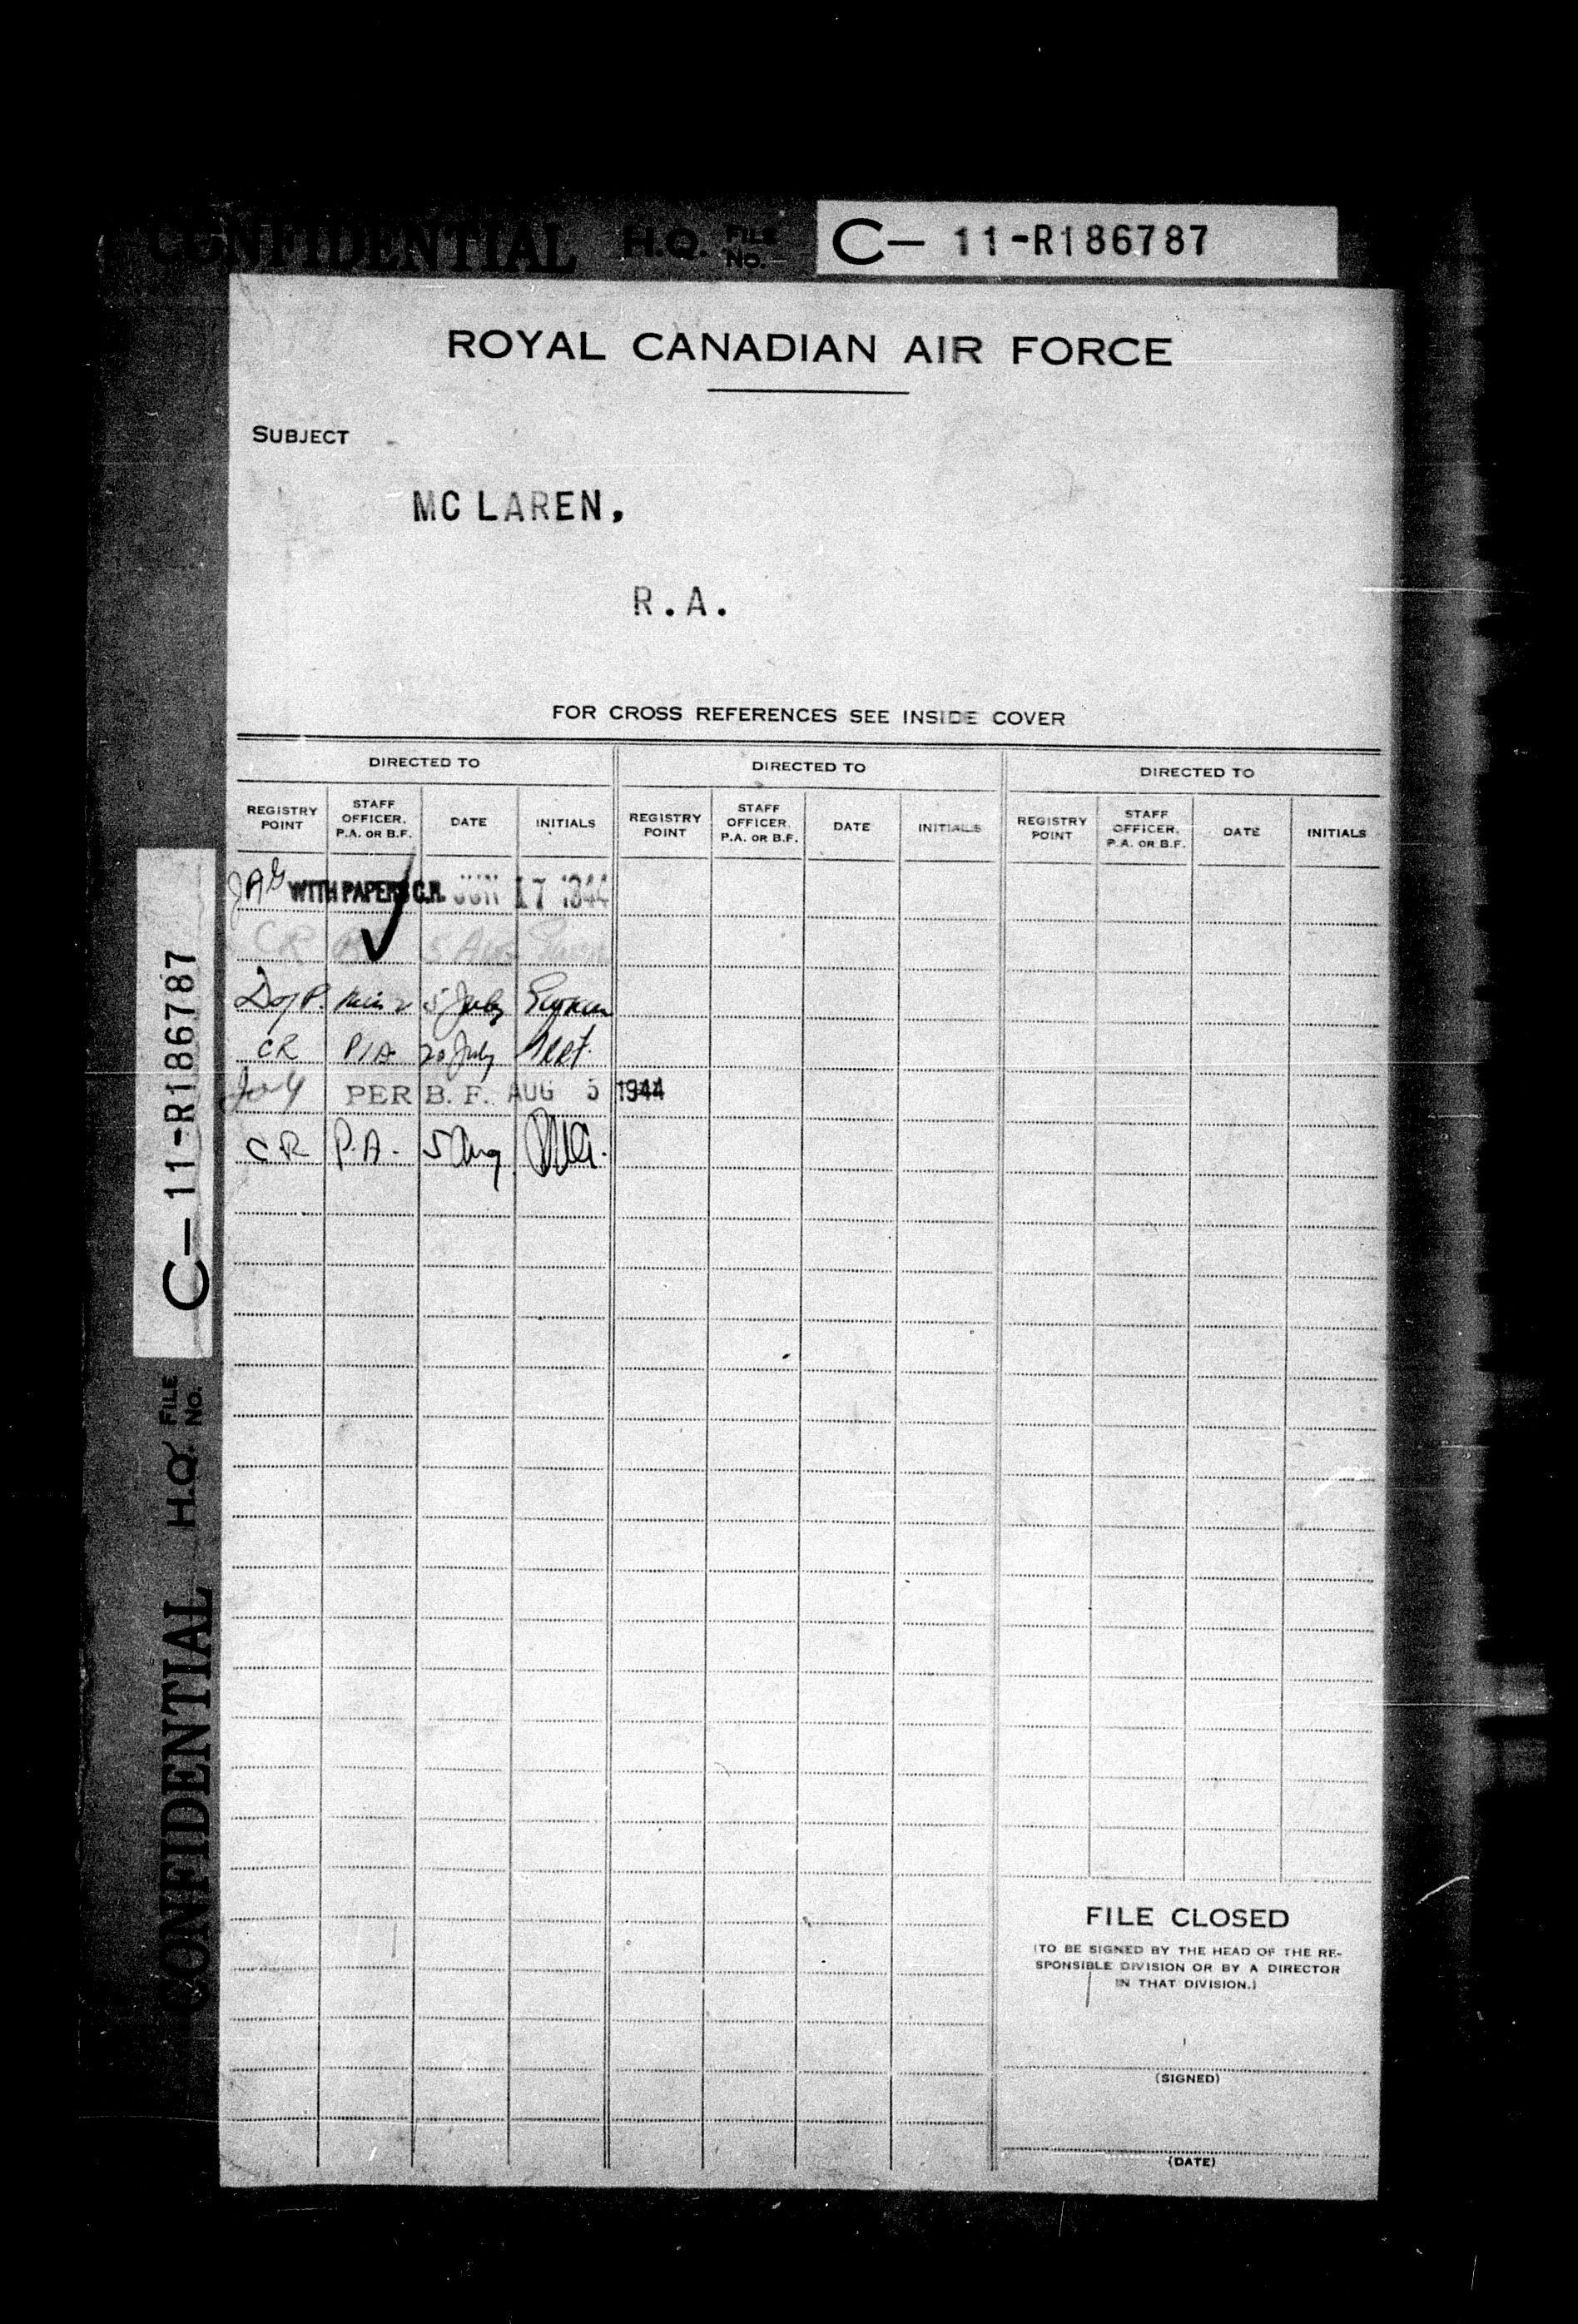 CONFIDENTIAL H.Q. FILE No. C— 11-R186787
ROYAL CANADIAN AIR FORCE
SUBJECT
MC LAREN,
R.A.
FOR CROSS REFERENCES SEE INSIDE COVER
DIRECTED TO DIRECTED TO DIRECTED TO
REGISTRY POINT STAFF OFFICER. P.A. OR B.F. DATE INITIALS REGISTRY POINT STAFF OFFICER. P.A. OR B.F. DATE INITIALS REGISTRY POINT STAFF OFFICER. P.A. OR B.F. DATE INITIALS
JAG WITH PAPERS C.R. JUN 17 1944
CR
5 July
CR P/A 20 July
PER B. F. AUG 5 1944
CR P.A. 5 Aug.
FILE CLOSED
(TO BE SIGNED BY THE HEAD OF THE RE-
SPONSIBLE DIVISION OR BY A DIRECTOR
IN THAT DIVISION.)
(SIGNED)
(DATE)
CONFIDENTIAL H.Q. FILE No. C— 11-R186787